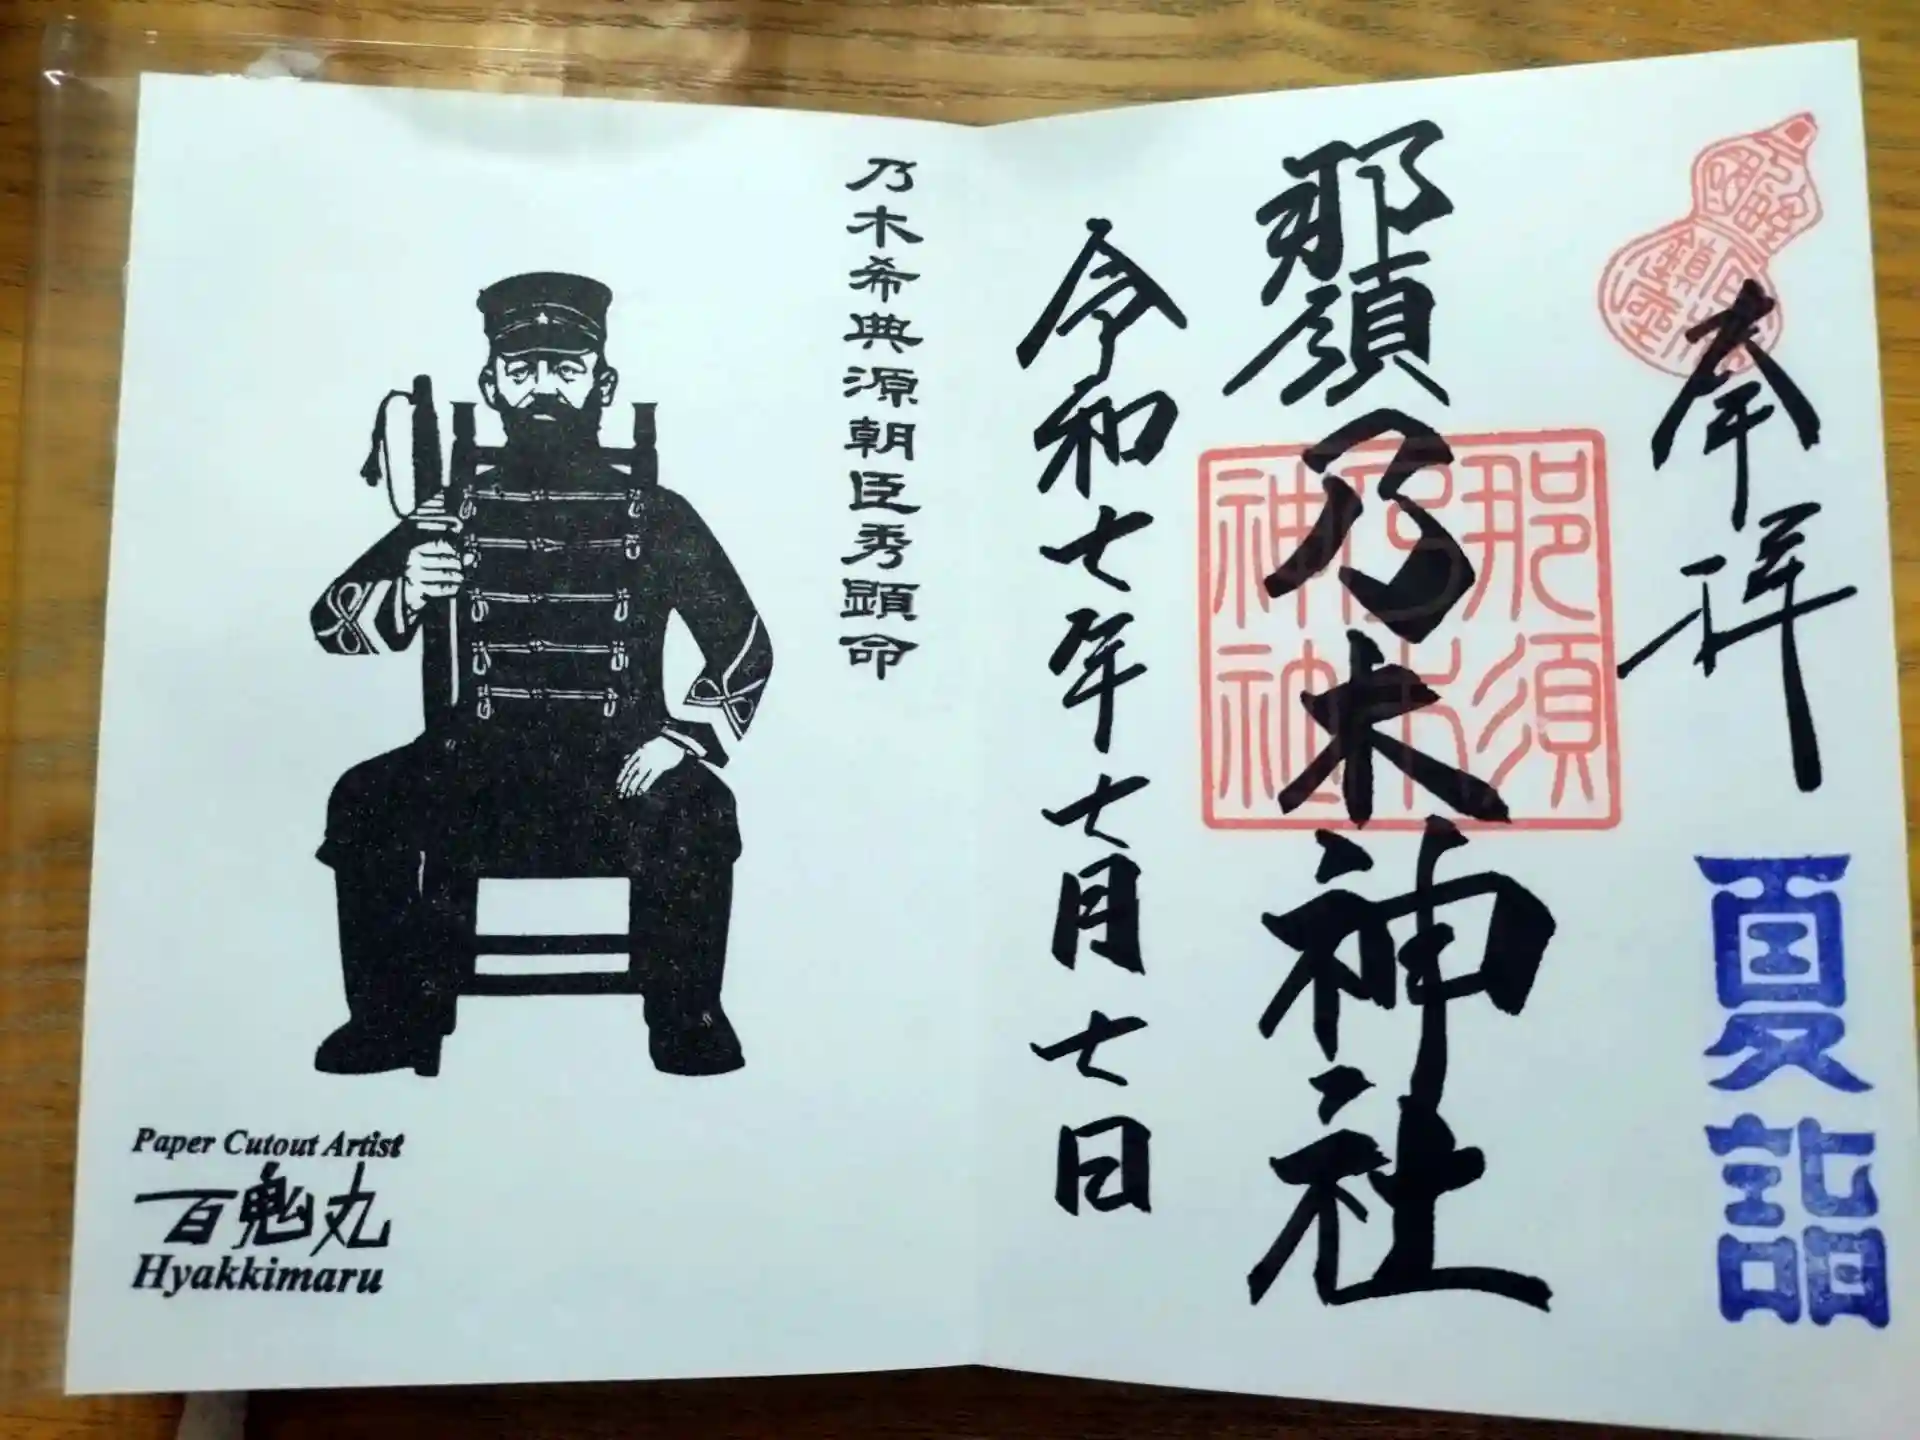 奉拝
夏詣
那須乃木神社
那須
乃木
神社
令和七年七月七日
乃木希典源朝臣秀顕命
Paper Cutout Artist
百鬼丸
Hyakkimaru